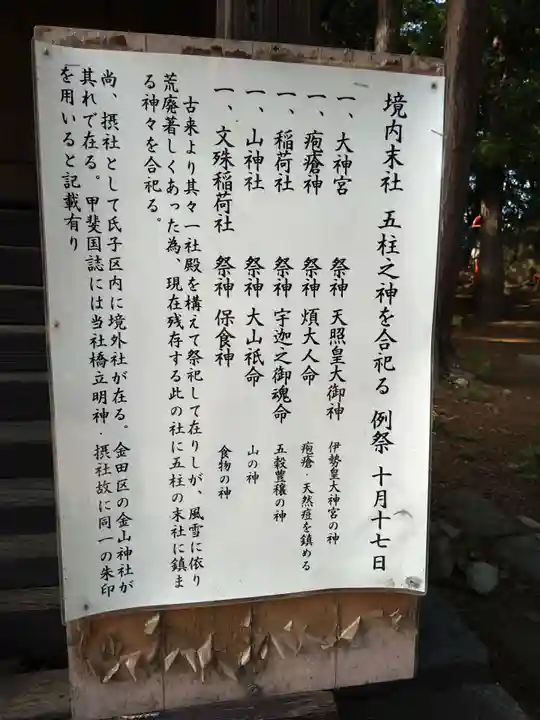 境内末社 五柱之神を合祀る 例祭 十月十七日
一、大神宮 祭神 天照皇大御神 伊勢皇大神宮の神
一、疱瘡神 祭神 煩大人命 疱瘡・天然痘を鎮める
一、稲荷社 祭神 宇迦之御魂命 五穀豊穣の神
一、山神社 祭神 大山祇命 山の神
一、文殊稲荷社 祭神 保食神 食物の神
古来より其々一社殿を構えて祭祀して在りしが、風雪に依り
荒廃著しくあった為、現在残存する此の社に五柱の末社に鎮ま
る神々を合祀る。
尚、摂社として氏子区内に境外社が在る。金田区の金山神社が
其れで在る。甲斐国誌には当社橋立明神・摂社故に同一の朱印
「を用いると記載有り